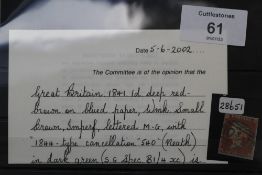 Cuttlestones
61
Date 5-6-2002
The Committee is of the opinion that the
Great Britain 1841 1d deep red-
brown on blued paper, Wmk Small
Crown, Imperf, lettered M-G, with
28651
1844-type cancellation 540 (Neath)
in dark green (S.G Spec B1/4 xc) is